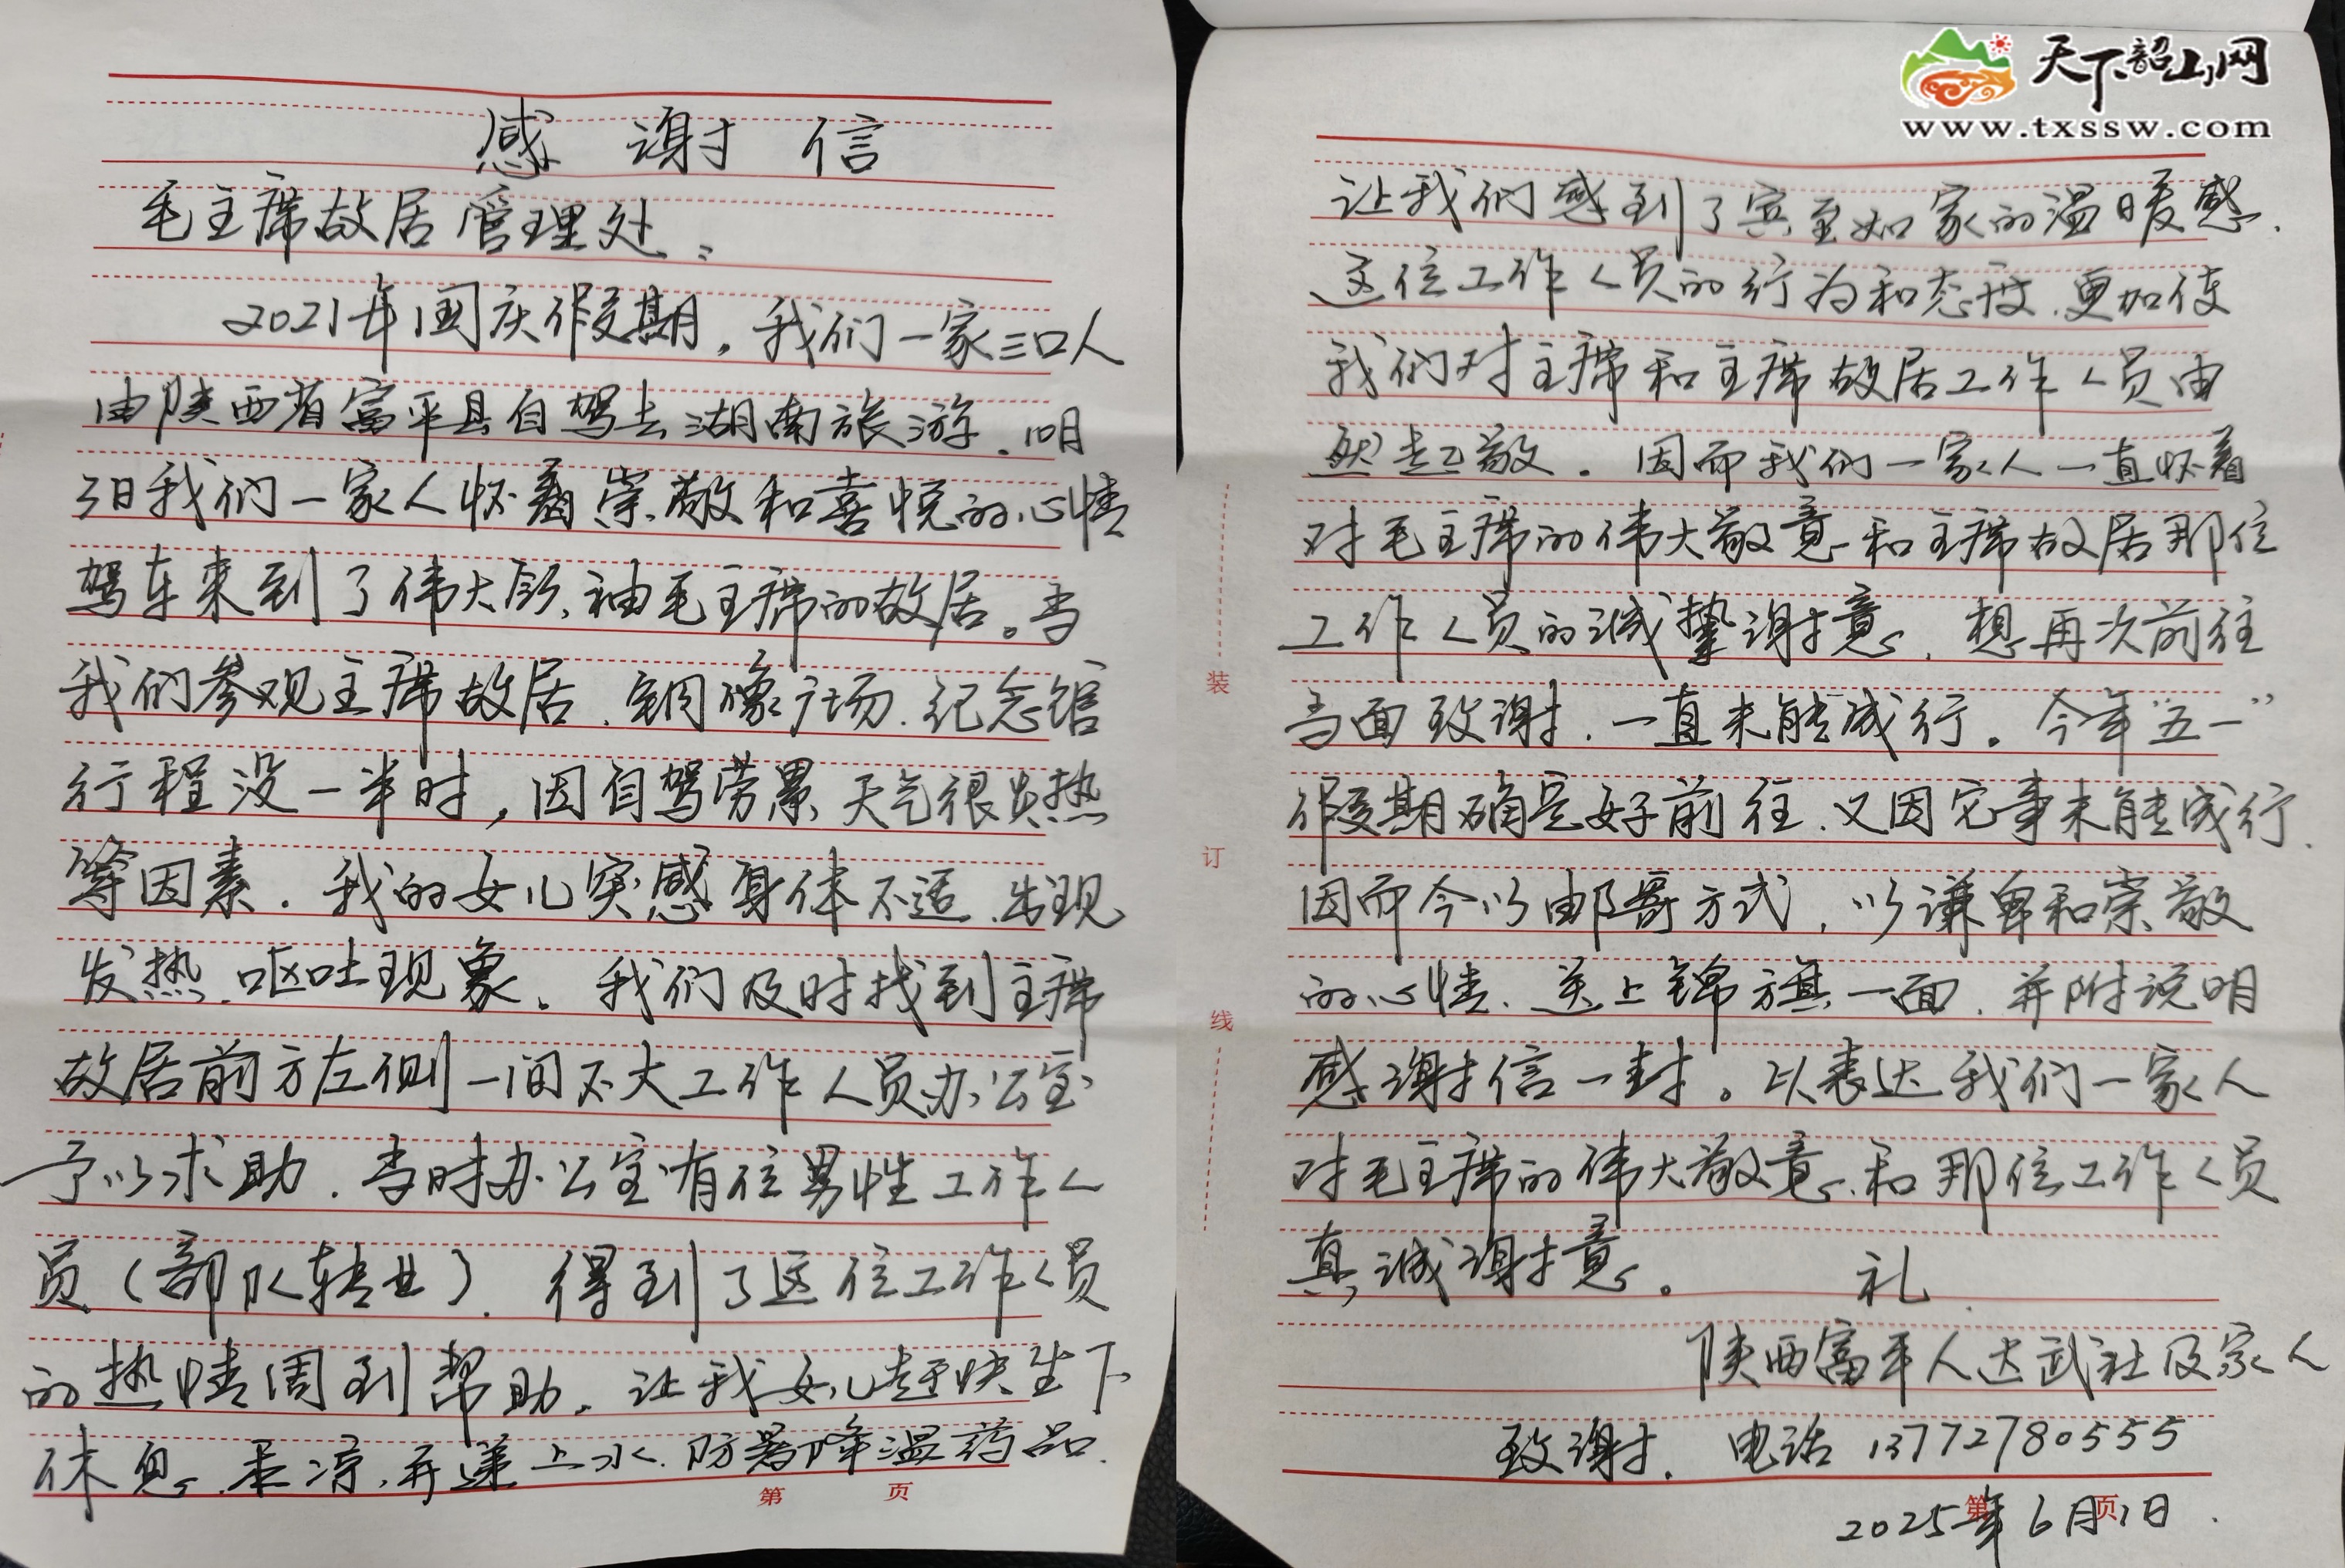 感谢信
毛主席故居管理处：
2021年国庆假期，我们一家三口人
由陕西省富平县自驾去湖南旅游。10月
3日我们一家人怀着崇敬和喜悦的心情
驾车来到了伟大领袖毛主席的故居。当
我们参观主席故居、铜像广场、纪念馆
行程没一半时，因自驾劳累、天气很炎热
等因素，我的女儿突感身体不适、出现
发热、呕吐现象。我们及时找到主席
故居前方左侧一间不大工作人员办公室
予以求助，当时办公室有位男性工作人
员（部队转业），得到了这位工作人员
的热情周到帮助，让我女儿赶快坐下
休息、乘凉，并递上水、防暑降温药品，
第 页
天下韶山网
www.txssw.com
让我们感到了宾至如家的温暖感，
这位工作人员的行为和态度，更加使
我们对主席和主席故居工作人员由
然起敬。因而我们一家人一直怀着
对毛主席的伟大敬意和主席故居那位
工作人员的诚挚谢意，想再次前往
当面致谢，一直未能成行。今年“五一”
假期确定好前往，又因它事未能成行，
因而今以邮寄方式，以谦卑和崇敬
的心情，送上锦旗一面，并附说明
感谢信一封。以表达我们一家人
对毛主席的伟大敬意，和那位工作人员
真诚谢意。 礼
陕西富平人达武社及家人
致谢，电话 13772780555
第 页
2025年6月1日
装
订
线